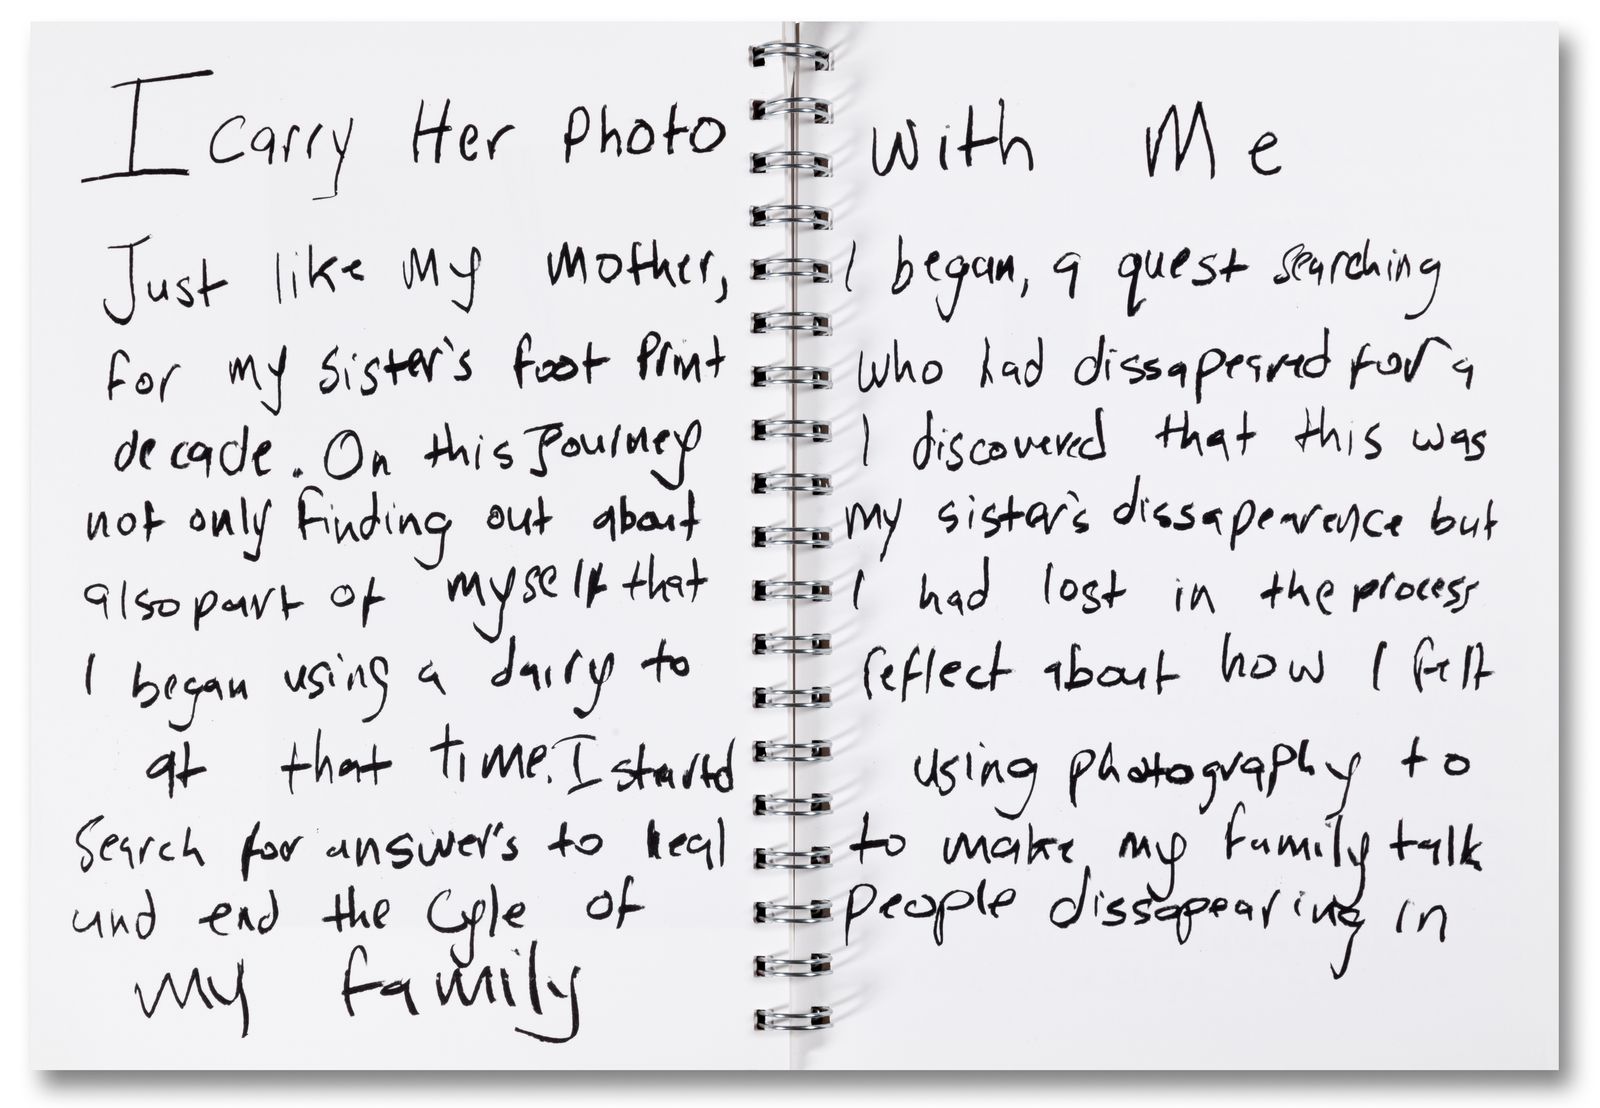 I Carry Her Photo With Me
Just like My Mother, I began, a quest searching
for my sister's foot Print who had dissapeared for a
decade. On this Journey I discovered that this was
not only finding out about my sister's dissapearence but
also part of myself that I had lost in the process
I began using a dairy to reflect about how I felt
at that time. I started using photography to
Search for answer's to heal to make my family talk
and end the Cyle of People dissapearing in
my family